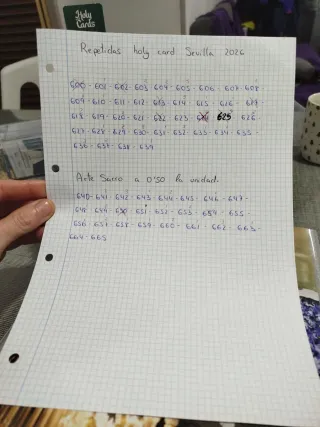 Holy
Cards
Repetidas holy card Sevilla 2026
600 - 601 - 602 - 603 - 604 - 605 - 606 - 607 - 608 -
609 - 610 - 611 - 612 - 613 - 614 - 615 - 616 - 617
618 - 619 - 620 - 621 - 622 - 623 - 625 626
627 - 628 - 629 - 630 - 631 - 632 - 633 - 634 - 635 -
636 - 637 - 638 - 639
Arte Sacro a 0'50 la unidad.
640 - 641 - 642 - 643 - 644 - 645 - 646 - 647 -
648 - 649 - 650 - 651 - 652 - 653 - 654 - 655 -
656 - 657 - 658 - 659 - 660 - 661 - 662 - 663 -
664 - 665